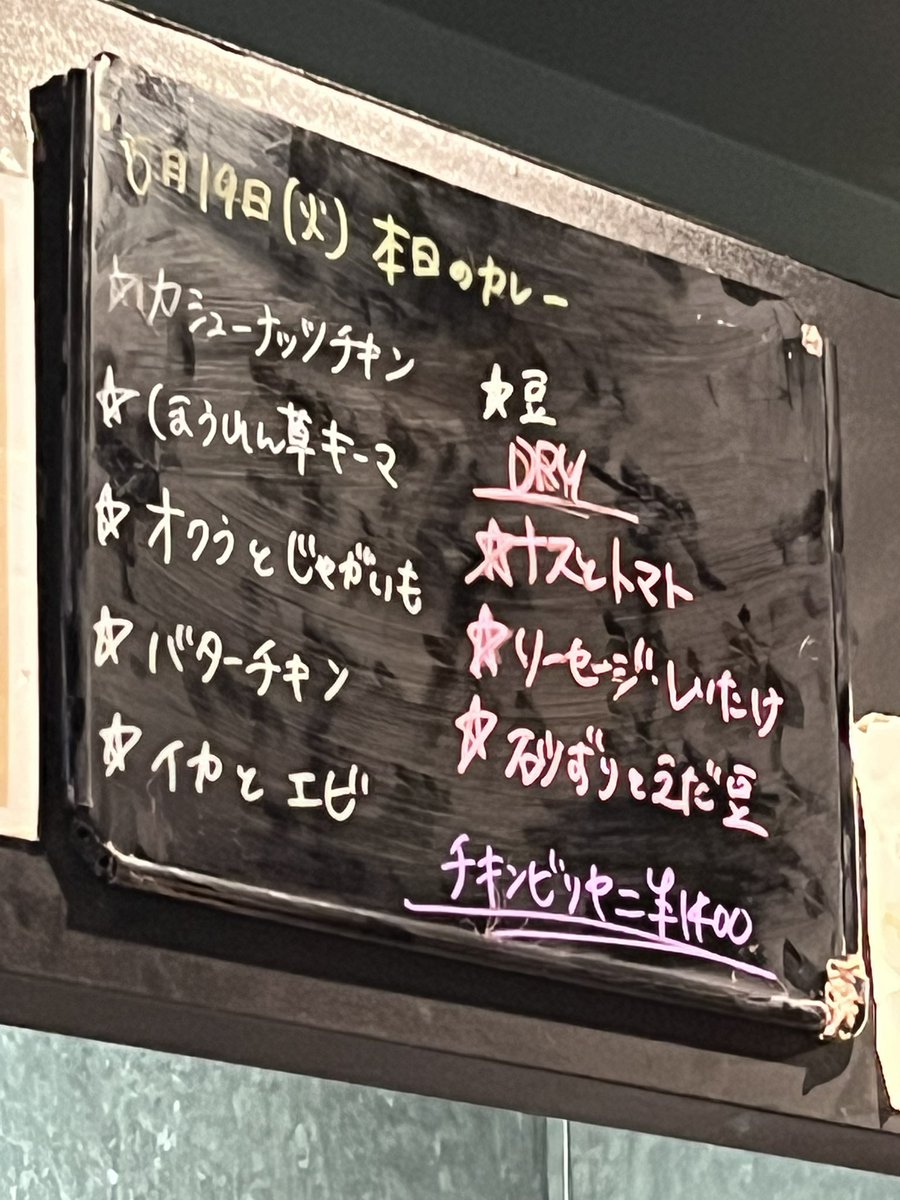 5月19日(火) 本日のカレー
☆カシューナッツチキン
☆ほうれん草キーマ
☆オクラとじゃがいも
☆バターチキン
☆イカとエビ
☆豆
DRY
☆ナスとトマト
☆ソーセージ・しいたけ
☆砂ずりとえだ豆
チキンビリヤニ¥1400